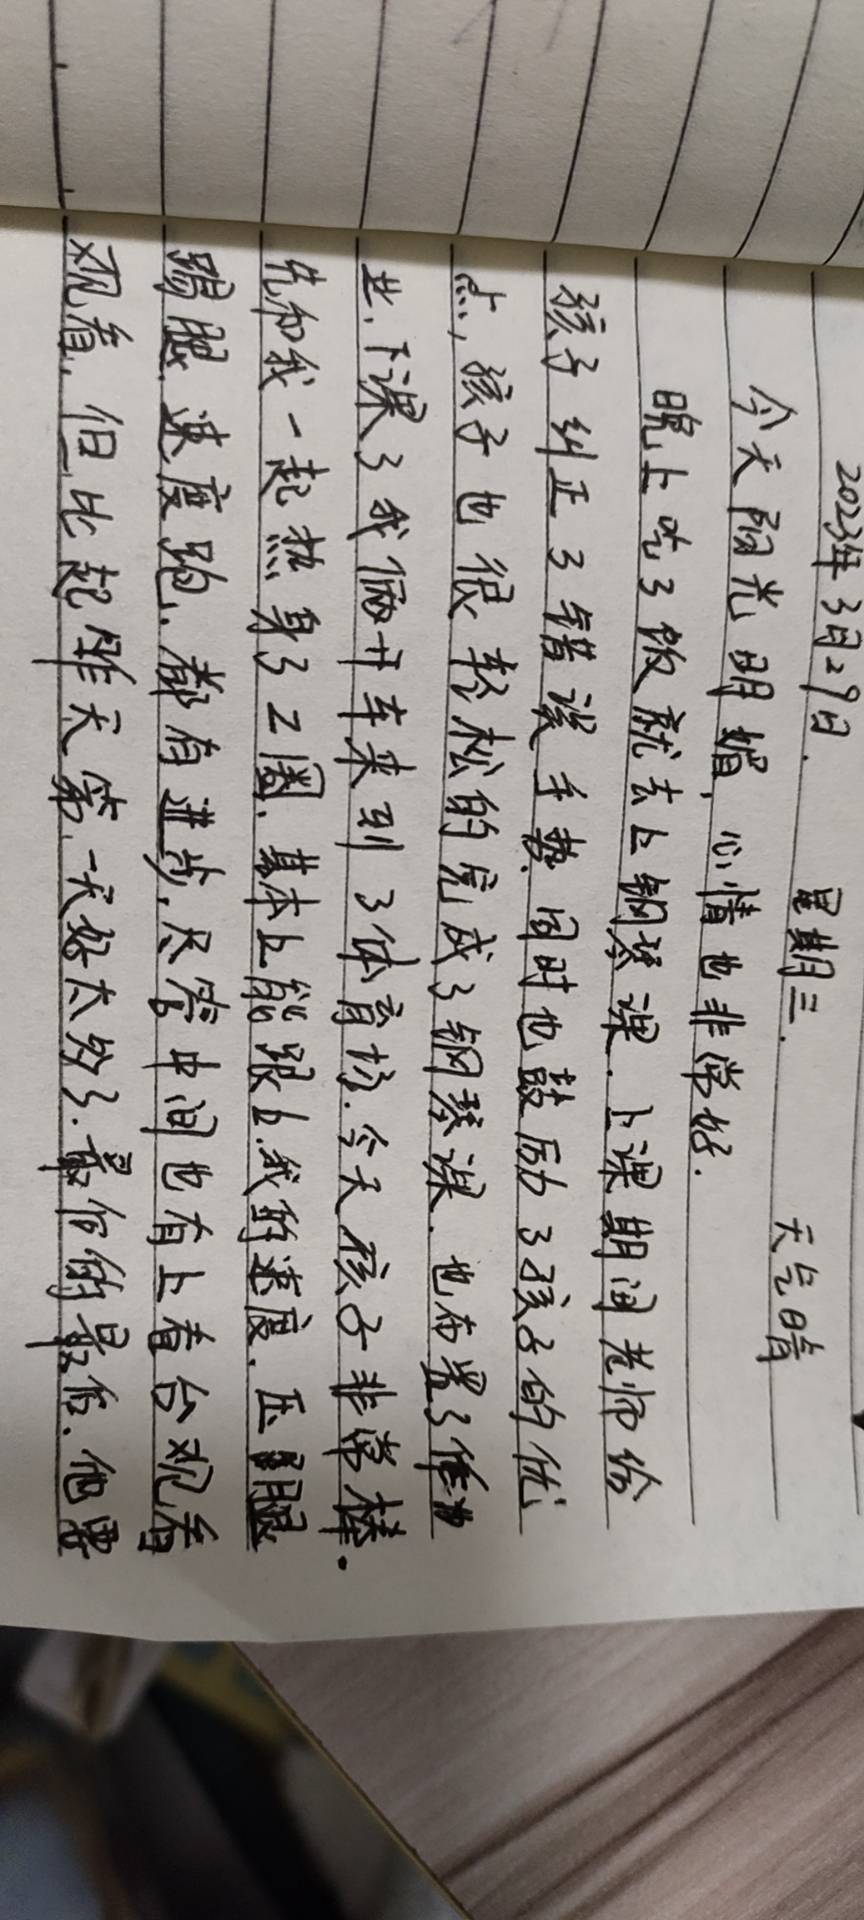 2023年3月29日. 星期三. 天气晴
今天阳光明媚, 心情也非常好.
晚上吃了饭就去上钢琴课. 上课期间老师给
孩子纠正了错误手势. 同时也鼓励了孩子的优
点, 孩子也很轻松的完成了钢琴课. 也布置了作业
业. 下课了我俩开车来到了体育场. 今天孩子非常棒.
先和我一起热身了2圈. 基本上能跟上我的速度. 压腿
踢腿. 速度跑. 都有进步. 尽管中间也有上看台观看
观看. 但比起昨天第一天好太多了. 最后的最后. 他